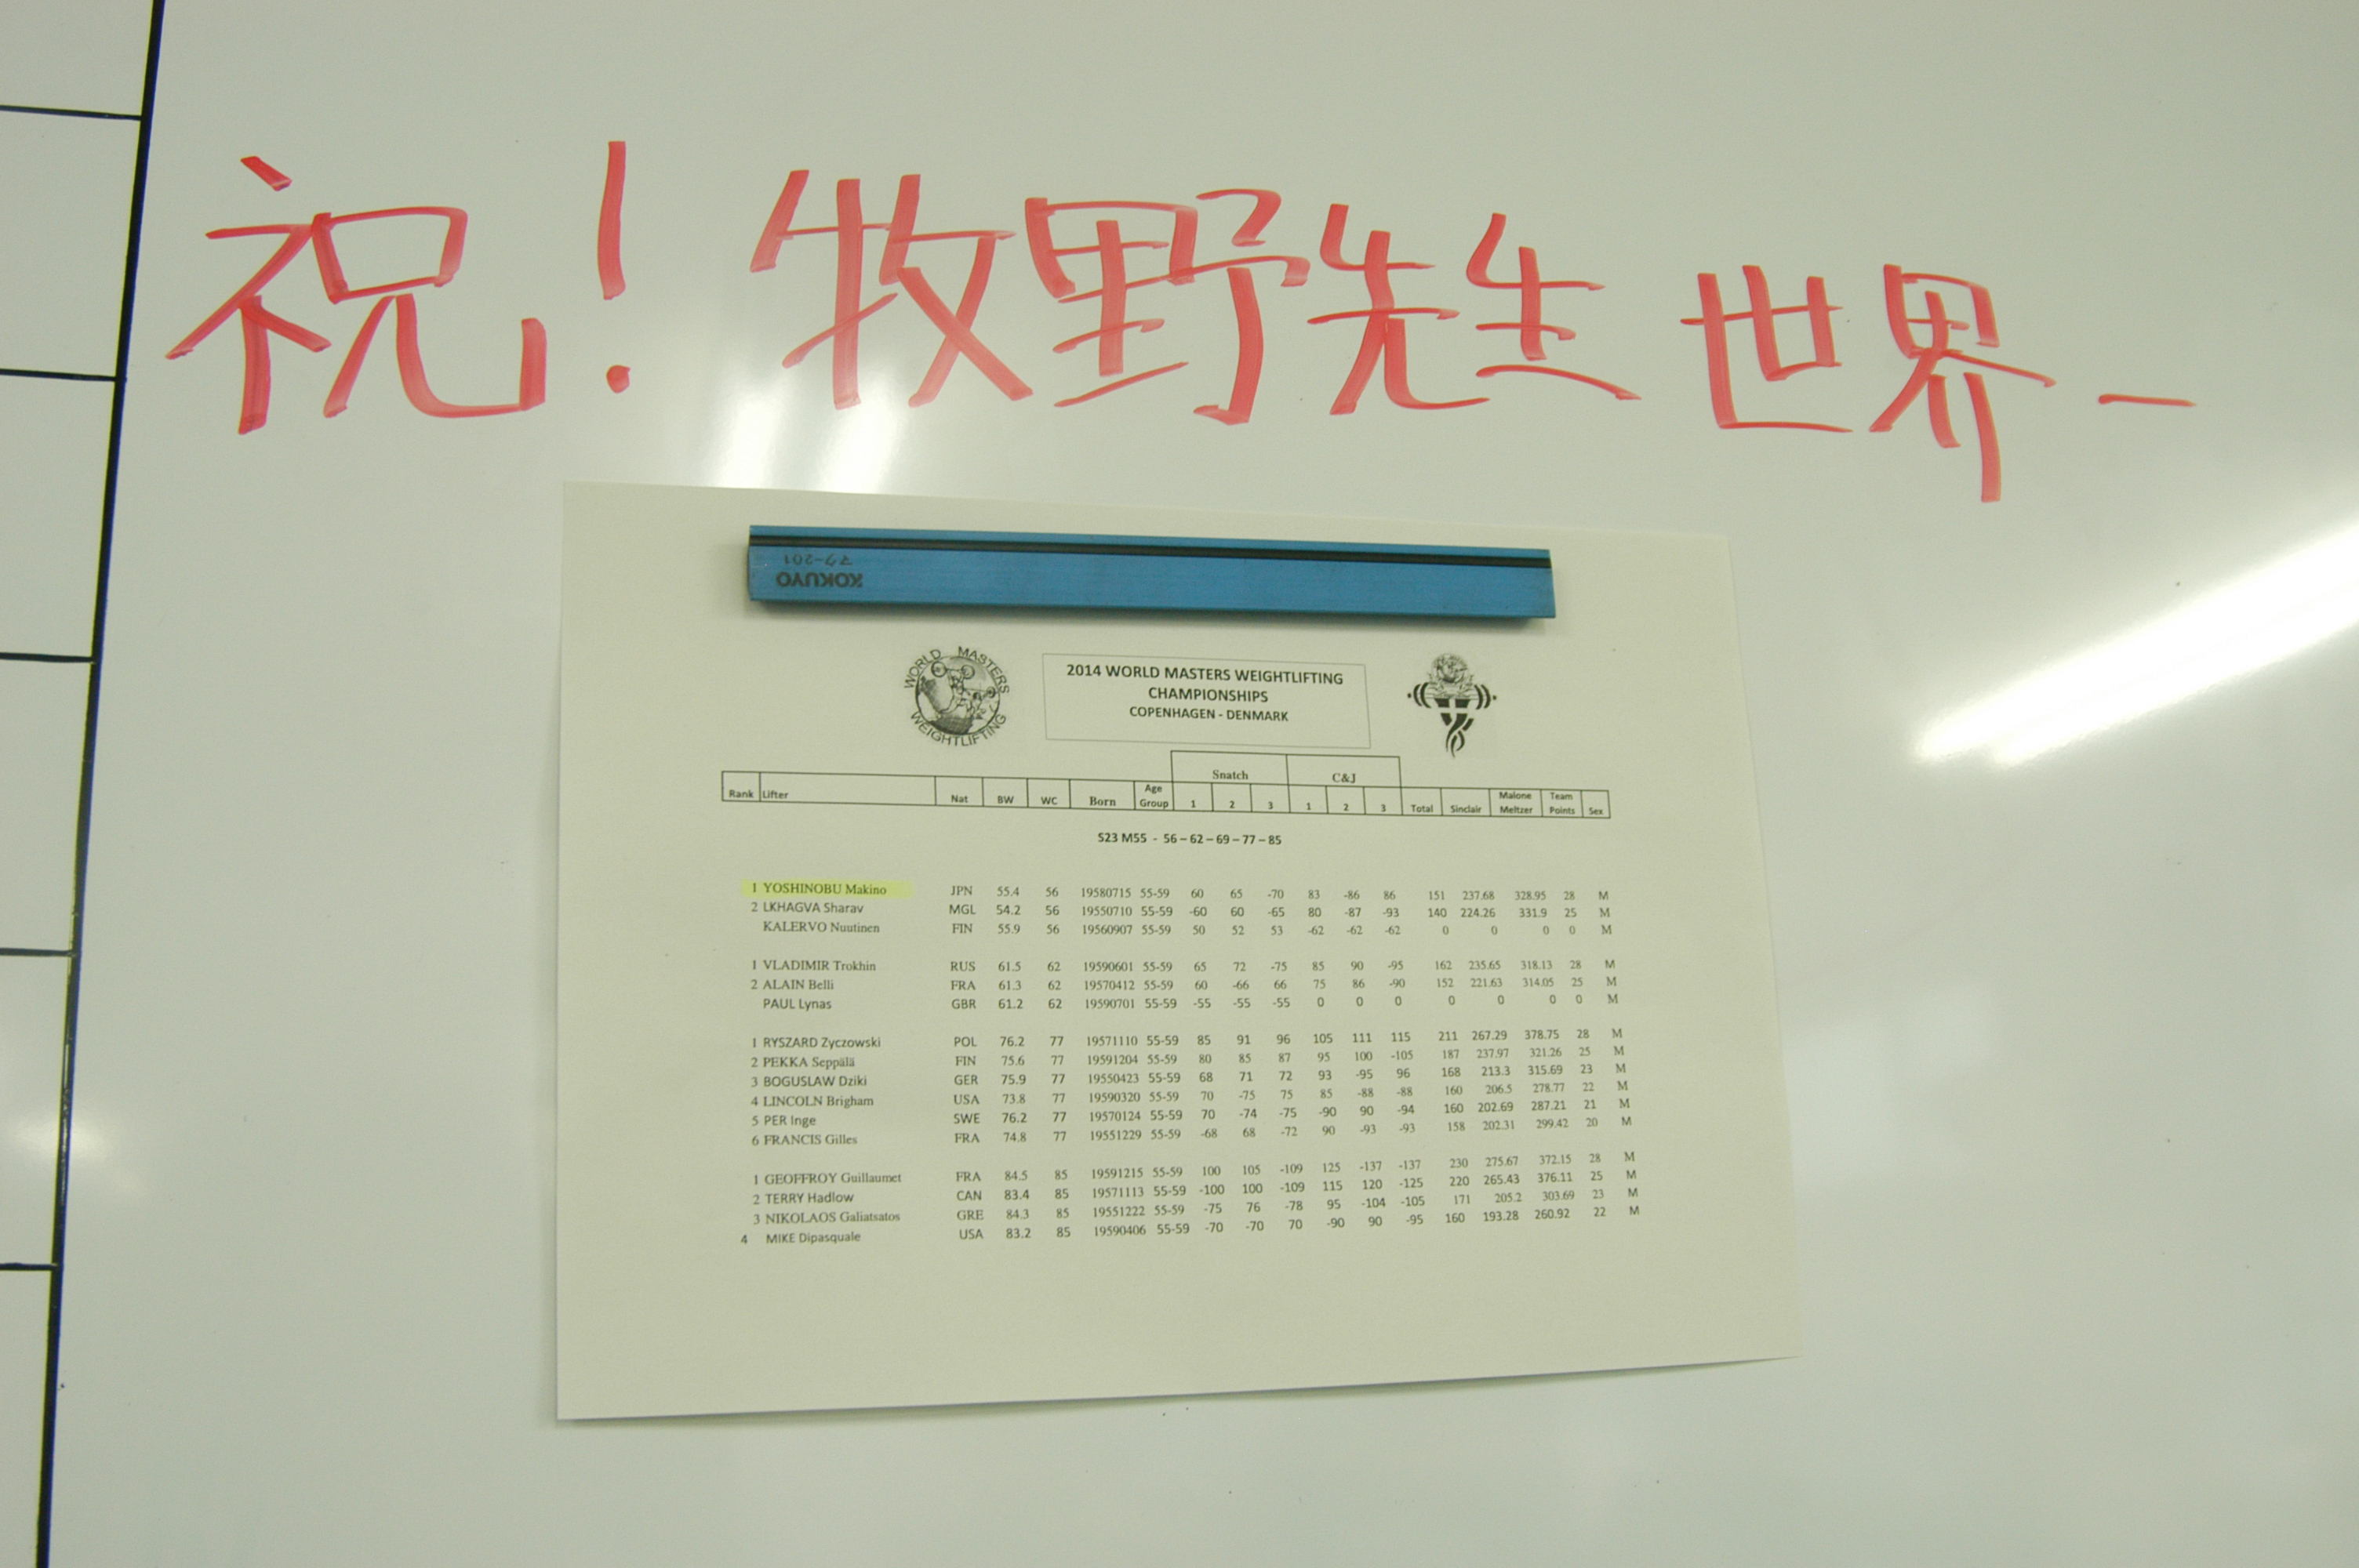 祝! 牧野先生 世界一
KOKUYO
マク-201
WORLD MASTERS
WEIGHTLIFTING
2014 WORLD MASTERS WEIGHTLIFTING
CHAMPIONSHIPS
COPENHAGEN - DENMARK
Snatch C&J
Rank Lifter Nat BW WC Born Age Group 1 2 3 1 2 3 Total Sinclair Malone Meltzer Team Points Sex
S23 M55 - 56 – 62 – 69 – 77 – 85
1 YOSHINOBU Makino JPN 55.4 56 19580715 55-59 60 65 -70 83 -86 86 151 237.68 328.95 28 M
2 LKHAGVA Sharav MGL 54.2 56 19550710 55-59 -60 60 -65 80 -87 -93 140 224.26 331.9 25 M
KALERVO Nuutinen FIN 55.9 56 19560907 55-59 50 52 53 -62 -62 -62 0 0 0 0 M
1 VLADIMIR Trokhin RUS 61.5 62 19590601 55-59 65 72 -75 85 90 -95 162 235.65 318.13 28 M
2 ALAIN Belli FRA 61.3 62 19570412 55-59 60 -66 66 75 86 -90 152 221.63 314.05 25 M
PAUL Lynas GBR 61.2 62 19590701 55-59 -55 -55 -55 0 0 0 0 0 0 0 M
1 RYSZARD Zyczowski POL 76.2 77 19571110 55-59 85 91 96 105 111 115 211 267.29 378.75 28 M
2 PEKKA Seppälä FIN 75.6 77 19591204 55-59 80 85 87 95 100 -105 187 237.97 321.26 25 M
3 BOGUSLAW Dziki GER 75.9 77 19550423 55-59 68 71 72 93 -95 96 168 213.3 315.69 23 M
4 LINCOLN Brigham USA 73.8 77 19590320 55-59 70 -75 75 85 -88 -88 160 206.5 278.77 22 M
5 PER Inge SWE 76.2 77 19570124 55-59 70 -74 -75 -90 90 -94 160 202.69 287.21 21 M
6 FRANCIS Gilles FRA 74.8 77 19551229 55-59 -68 68 -72 90 -93 -93 158 202.31 299.42 20 M
1 GEOFFROY Guillaumet FRA 84.5 85 19591215 55-59 100 105 -109 125 -137 -137 230 275.67 372.15 28 M
2 TERRY Hadlow CAN 83.4 85 19571113 55-59 -100 100 -109 115 120 -125 220 265.43 376.11 25 M
3 NIKOLAOS Galiatsatos GRE 84.3 85 19551222 55-59 -75 76 -78 95 -104 -105 171 205.2 303.69 23 M
4 MIKE Dipasquale USA 83.2 85 19590406 55-59 -70 -70 70 -90 90 -95 160 193.28 260.92 22 M